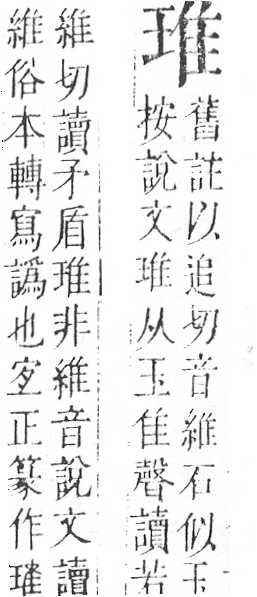 琟
舊註以追切音維石似玉
按說文琟从玉隹聲讀若
維切讀矛盾琟非維音說文讀
維俗本轉寫譌也㝎正篆作琟